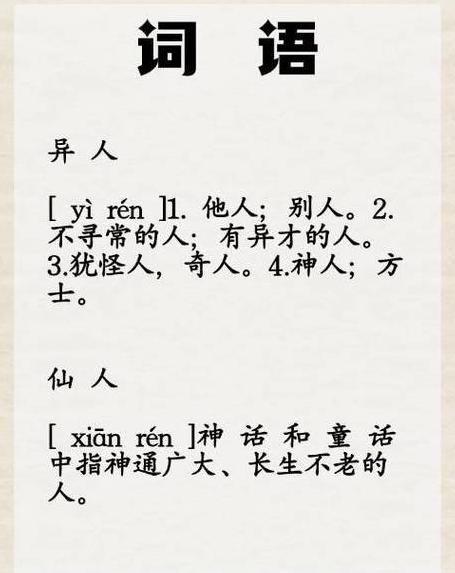 词 语
异 人
[ yì rén ]1. 他人；别人。2.
不寻常的人；有异才的人。
3.犹怪人，奇人。4.神人；方
士。
仙 人
[ xiān rén ]神 话 和 童 话
中指神通广大、长生不老的
人。